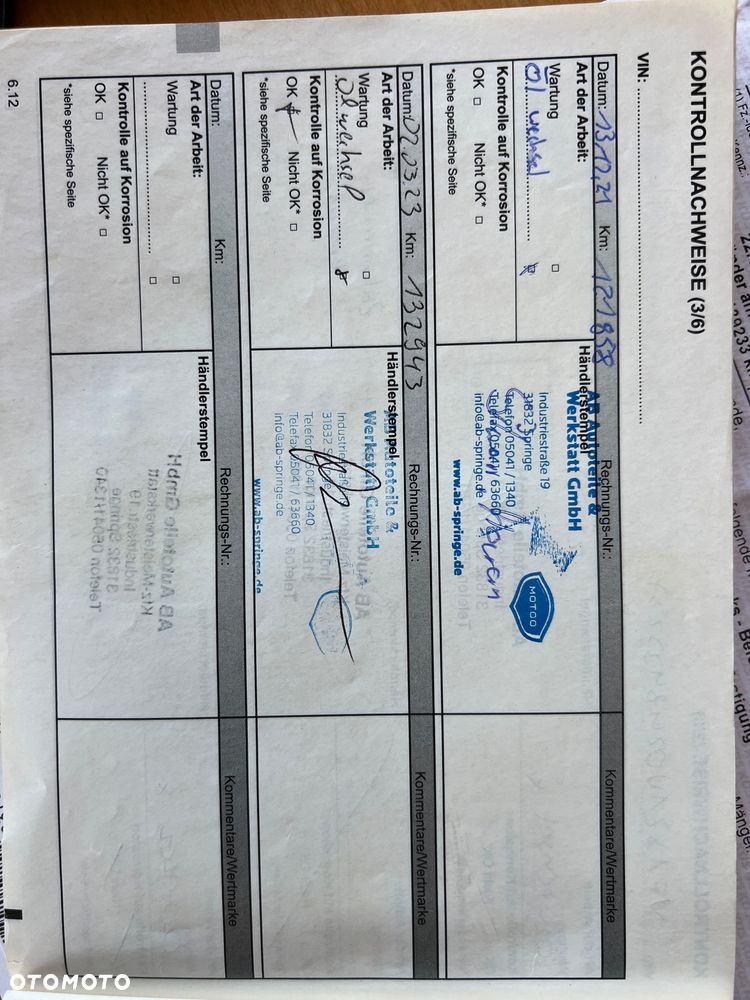 KONTROLLNACHWEISE (3/6)
VIN: ........................................
Datum: 13.12.21 Km: 121858 Rechnungs-Nr.: Kommentare/Wertmarke
Art der Arbeit: Händlerstempel
Wartung □
Öl wechsel
Kontrolle auf Korrosion
OK □ Nicht OK* □
*siehe spezifische Seite
AB Autoteile &
Werkstatt GmbH
Industriestraße 19
31832 Springe
Telefon 05041 / 1340
Telefax 05041 / 63660
info@ab-springe.de
www.ab-springe.de
MOTOO
Datum: 02.03.23 Km: 132943 Rechnungs-Nr.: Kommentare/Wertmarke
Art der Arbeit: Händlerstempel
Wartung □
Ölwechsel
Kontrolle auf Korrosion
OK Nicht OK* □
*siehe spezifische Seite
Autoteile &
Werkstatt GmbH
Industriestraße
31832
Telefon 05041 / 1340
Telefax 05041 / 63660
info@ab-springe.de
www.ab-springe.de
Datum: Km: Rechnungs-Nr.: Kommentare/Wertmarke
Art der Arbeit: Händlerstempel
Wartung □
.................... □
Kontrolle auf Korrosion
OK □ Nicht OK* □
*siehe spezifische Seite
6.12
OTOMOTO